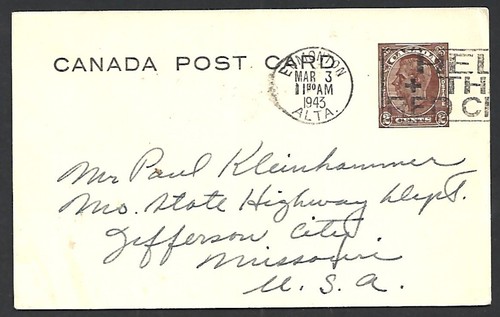 CANADA POST CARD
EDMONTON
MAR 3
11 30 AM
1943
ALTA.
CANADA
CENTS
HEL
+ TH
RED CR
Mr Paul Kleinhammer
Mo. State Highway Dept.
Jefferson City
Missouri
U. S. A.